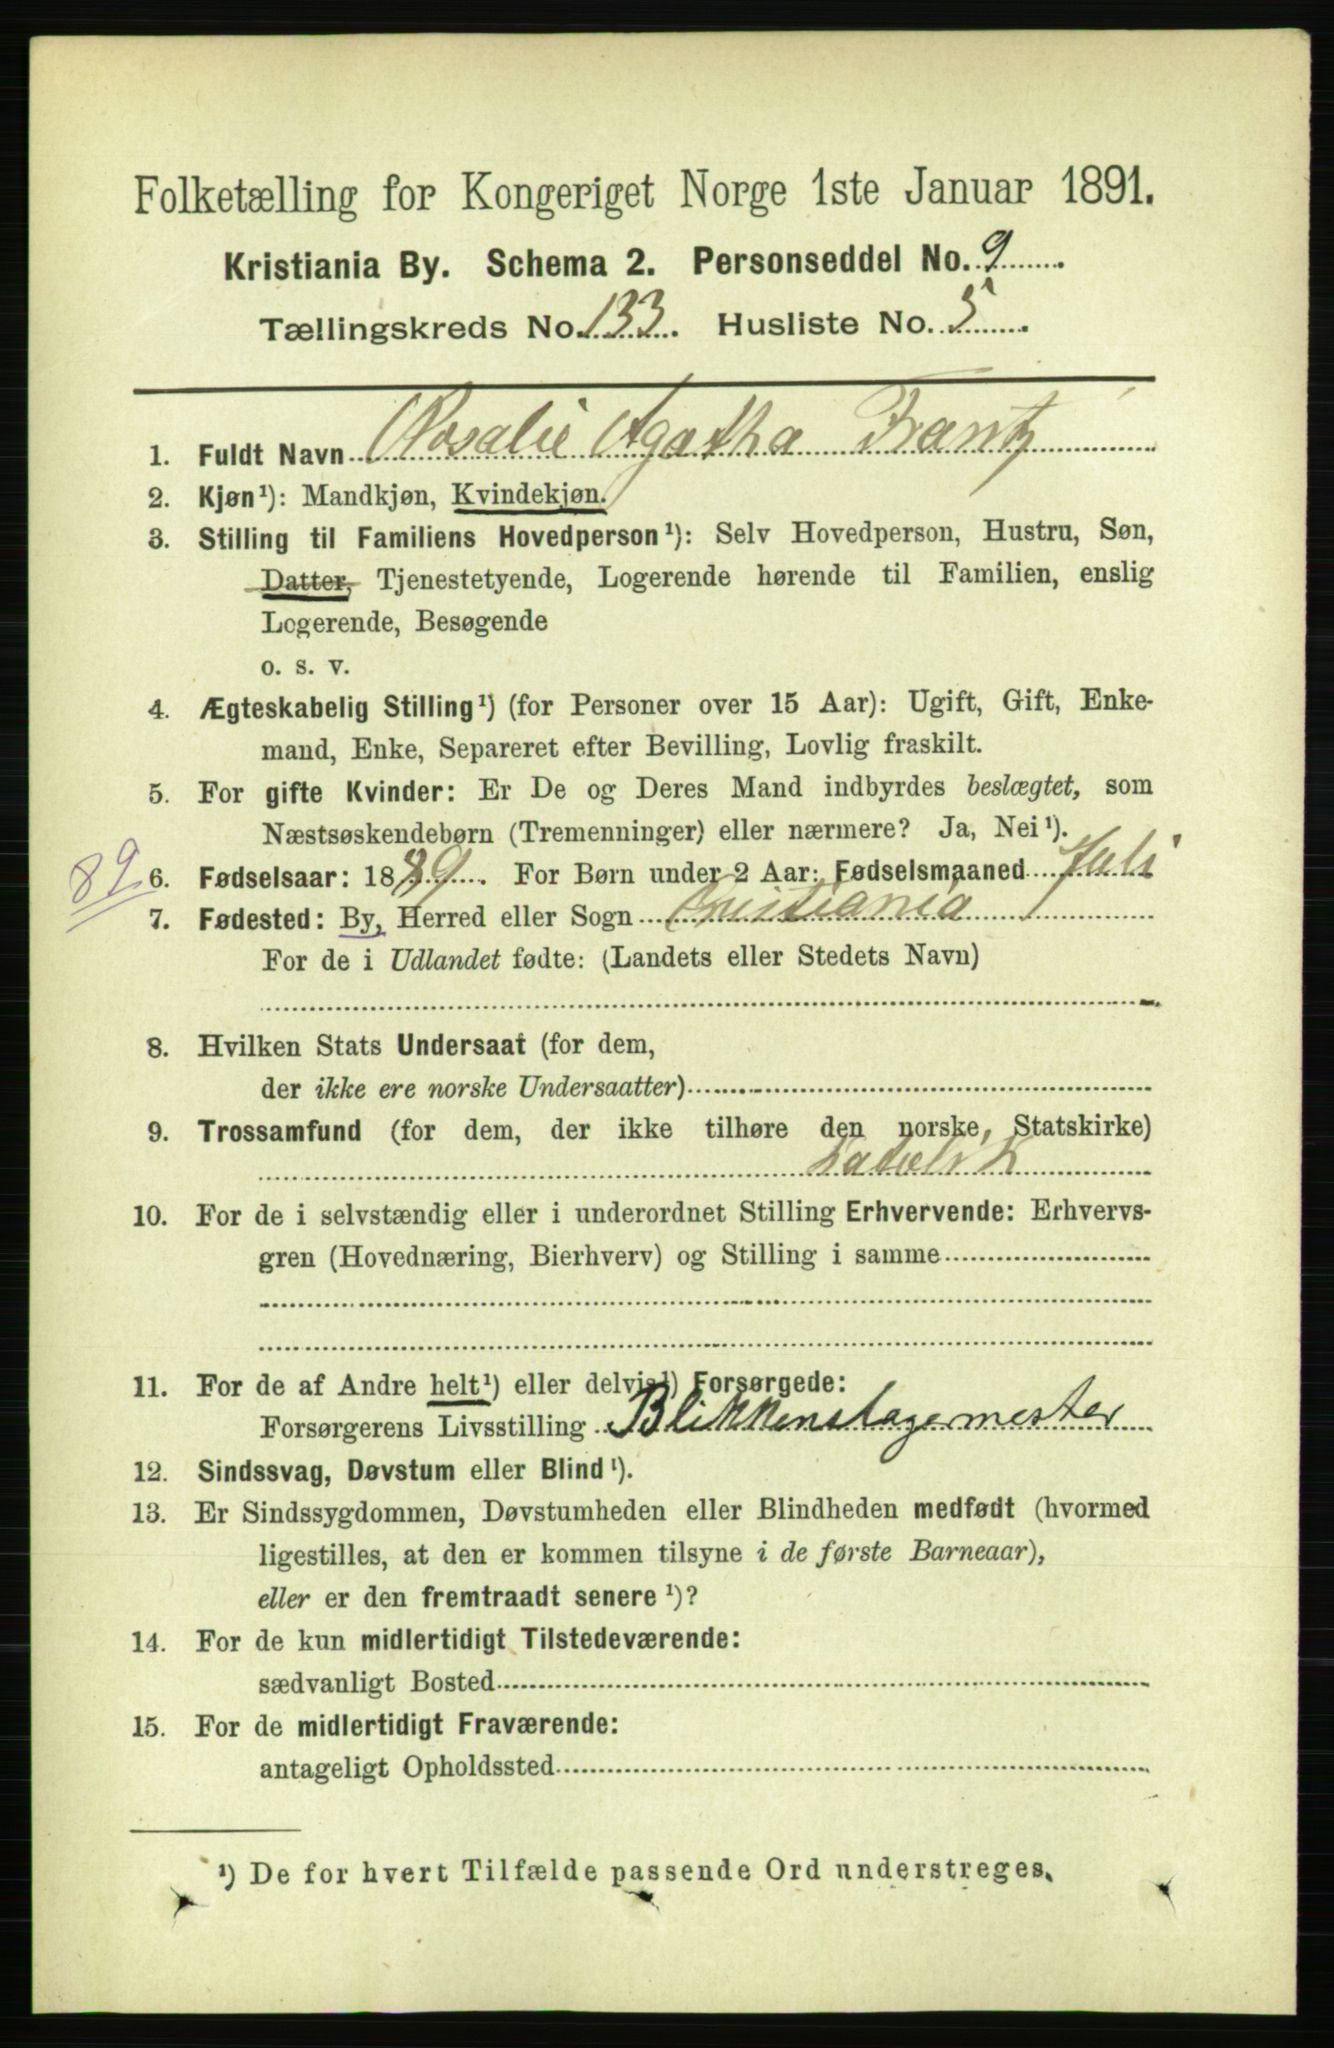 Folketælling for Kongeriget Norge 1ste Januar 1891.
Kristiania By. Schema 2. Personseddel No. 9
Tællingskreds No. 133. Husliste No. 5
1. Fuldt Navn Rosalie Agatha Frantz
2. Kjøn¹): Mandkjøn, Kvindekjøn.
3. Stilling til Familiens Hovedperson¹): Selv Hovedperson, Hustru, Søn,
Datter, Tjenestetyende, Logerende hørende til Familien, enslig
Logerende, Besøgende
o. s. v.
4. Ægteskabelig Stilling¹) (for Personer over 15 Aar): Ugift, Gift, Enke-
mand, Enke, Separeret efter Bevilling, Lovlig fraskilt.
5. For gifte Kvinder: Er De og Deres Mand indbyrdes beslægtet, som
Næstsøskendebørn (Tremenninger) eller nærmere? Ja, Nei¹).
89 6. Fødselsaar: 1889. For Børn under 2 Aar: Fødselsmaaned Juli
7. Fødested: By, Herred eller Sogn Cristiania
For de i Udlandet fødte: (Landets eller Stedets Navn)
8. Hvilken Stats Undersaat (for dem,
der ikke ere norske Undersaatter)
9. Trossamfund (for dem, der ikke tilhøre den norske Statskirke)
Katolik
10. For de i selvstændig eller i underordnet Stilling Erhvervende: Erhvervs-
gren (Hovednæring, Bierhverv) og Stilling i samme
11. For de af Andre helt¹) eller delvis¹) Forsørgede:
Forsørgerens Livsstilling Blikkenslagermester
12. Sindssvag, Døvstum eller Blind¹).
13. Er Sindssygdommen, Døvstumheden eller Blindheden medfødt (hvormed
ligestilles, at den er kommen tilsyne i de første Barneaar),
eller er den fremtraadt senere¹)?
14. For de kun midlertidigt Tilstedeværende:
sædvanligt Bosted
15. For de midlertidigt Fraværende:
antageligt Opholdssted
¹) De for hvert Tilfælde passende Ord understreges.